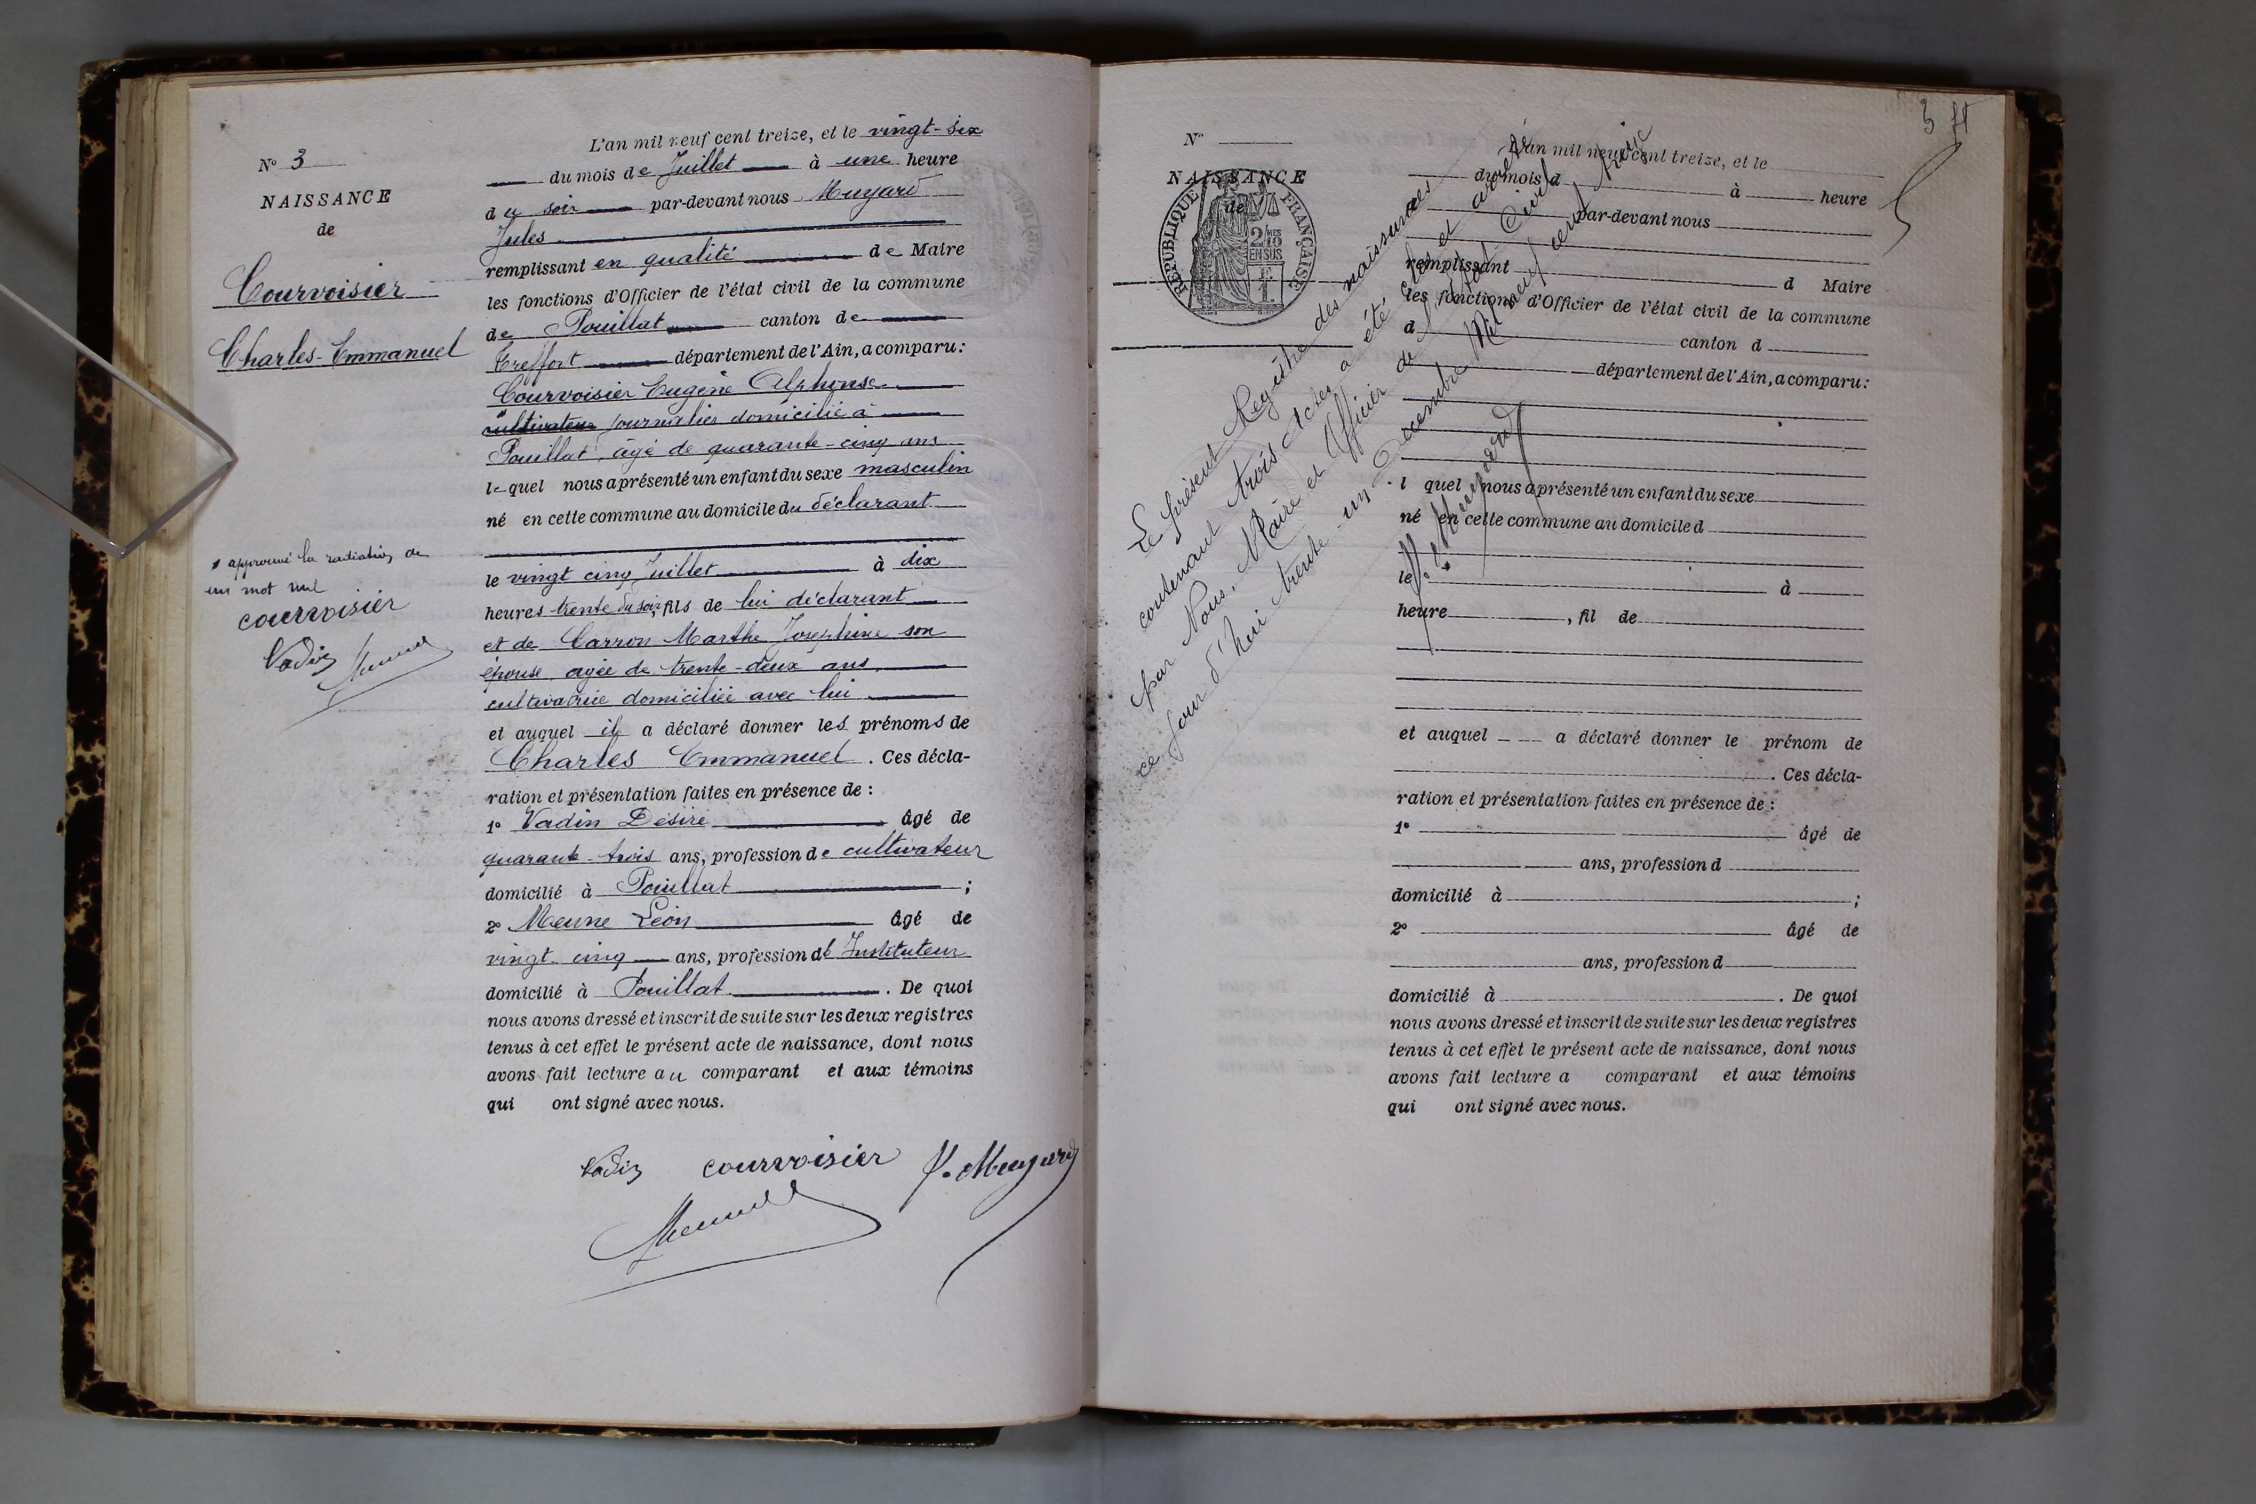 N° 3
NAISSANCE
de
Courvoisier
Charles-Emmanuel
L'an mil neuf cent treize, et le vingt-six
du mois de Juillet à une heure
du soir par-devant nous Mugard
Jules
remplissant en qualité de Maire
les fonctions d'Officier de l'état civil de la commune
de Pouillat canton de
Treffort département de l'Ain, a comparu :
Courvoisier Eugène Alphonse
cultivateur journalier domicilié à
Pouillat, âgé de quarante-cinq ans
lequel nous a présenté un enfant du sexe masculin
né en cette commune au domicile du déclarant
le vingt cinq Juillet à dix
heures trente du soir, fils de lui déclarant
et de Carron Marthe Joséphine son
épouse agée de trente-deux ans
cultivatrice domiciliée avec lui
et auquel il a déclaré donner les prénoms de
Charles Emmanuel. Ces décla-
ration et présentation faites en présence de :
1° Vadin Désiré âgé de
quarante-trois ans, profession de cultivateur
domicilié à Pouillat ;
2° Meune Léon âgé de
vingt-cinq ans, profession d' Instituteur
domicilié à Pouillat. De quoi
nous avons dressé et inscrit de suite sur les deux registres
tenus à cet effet le présent acte de naissance, dont nous
avons fait lecture au comparant et aux témoins
qui ont signé avec nous.
approuvé la radiation de
un mot nul
courvoisier
Vadin
Vadin courvoisier J. Mugard
3
N°
NAISSANCE
de
RÉPUBLIQUE FRANÇAISE
2/10 MES
EN SUS
1 F.
L'an mil neuf cent treize, et le
du mois d à heure
par-devant nous
remplissant d Maire
les fonctions d'Officier de l'état civil de la commune
d canton d
département de l'Ain, a comparu :
l quel nous a présenté un enfant du sexe
né en cette commune au domicile d
le à
heure , fil de
et auquel a déclaré donner le prénom de
. Ces décla-
ration et présentation faites en présence de :
1° âgé de
ans, profession d
domicilié à ;
2° âgé de
ans, profession d
domicilié à . De quoi
nous avons dressé et inscrit de suite sur les deux registres
tenus à cet effet le présent acte de naissance, dont nous
avons fait lecture a comparant et aux témoins
qui ont signé avec nous.
Le présent Registre des naissances
contenant trois actes a été clos et arrêté
par Nous, Maire et Officier de l'Etat Civil
ce jour d'hui trente-un Décembre Mil neuf cent treize
J. Mugard